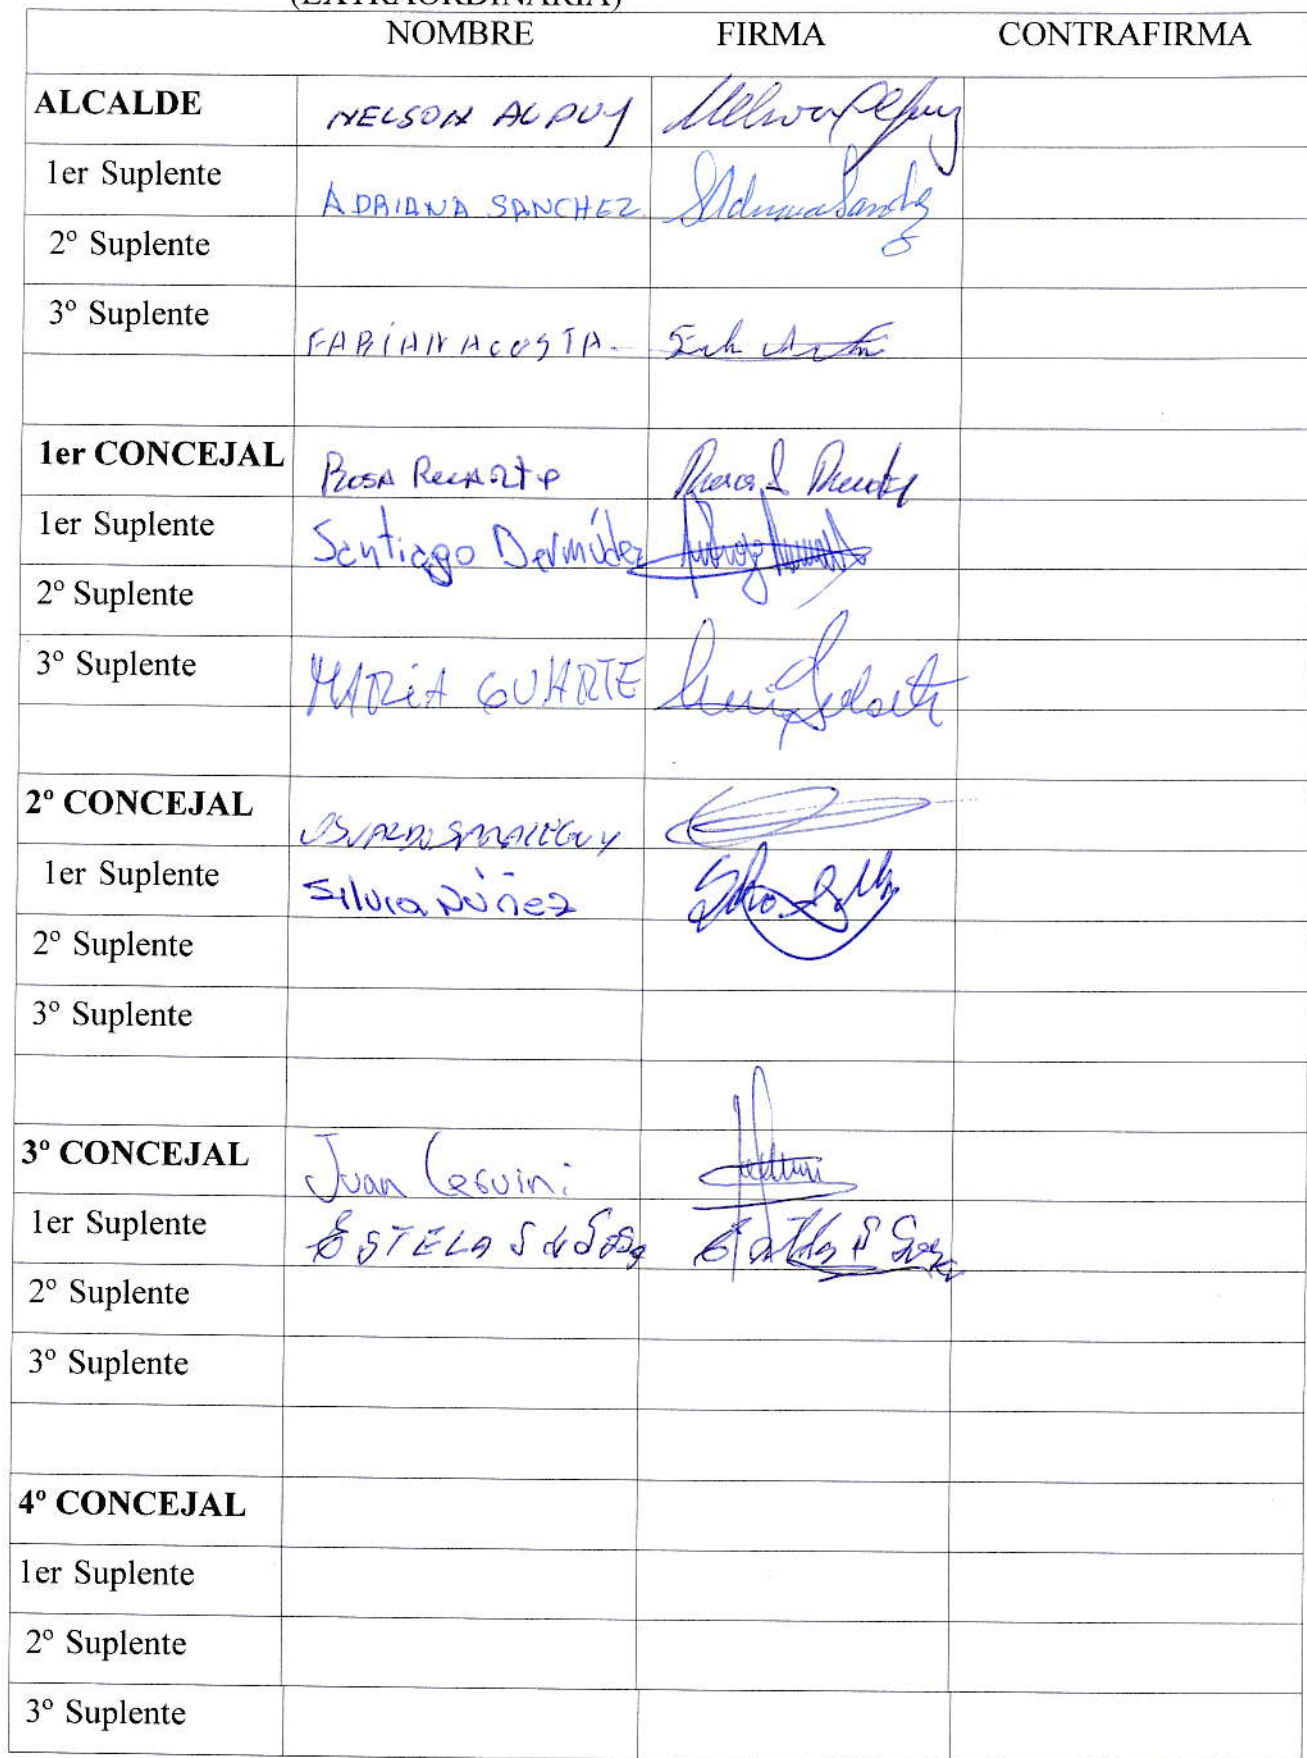 (EXTRAORDINARIA)
NOMBRE FIRMA CONTRAFIRMA
ALCALDE NELSON ALPUY
1er Suplente ADRIANA SANCHEZ
2º Suplente
3º Suplente FABIÁN ACOSTA
1er CONCEJAL ROSA RECARTE
1er Suplente Santiago Bermúdez
2º Suplente
3º Suplente MARIA GUARTE
2º CONCEJAL
1er Suplente Silvia Núñez
2º Suplente
3º Suplente
3º CONCEJAL Juan Cesuini
1er Suplente ESTELA S de Sosa
2º Suplente
3º Suplente
4º CONCEJAL
1er Suplente
2º Suplente
3º Suplente